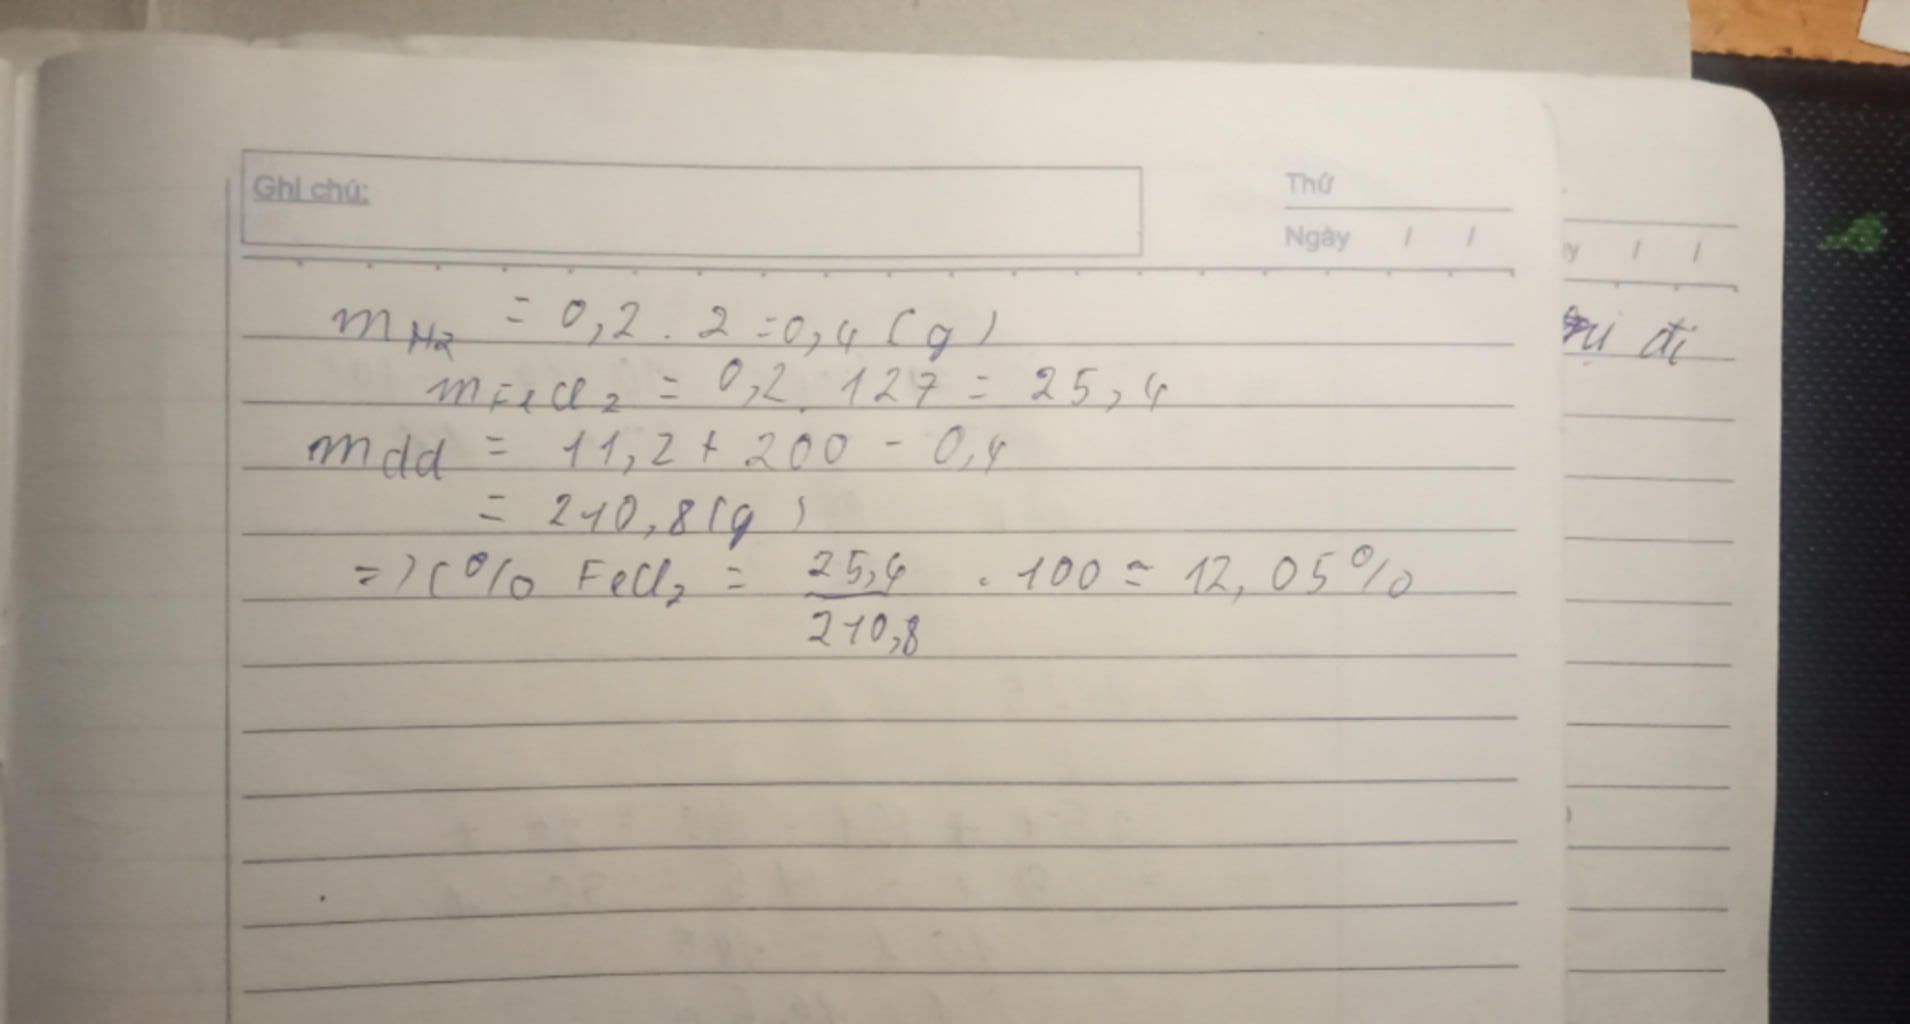 Ghi chú:
Thứ
Ngày / /
m H2 = 0,2 . 2 = 0,4 (g)
m FeCl2 = 0,2 . 127 = 25,4
mdd = 11,2 + 200 - 0,4
= 210,8 (g)
=> C% FeCl2 = 25,4 / 210,8 . 100 = 12,05%
y / /
đi